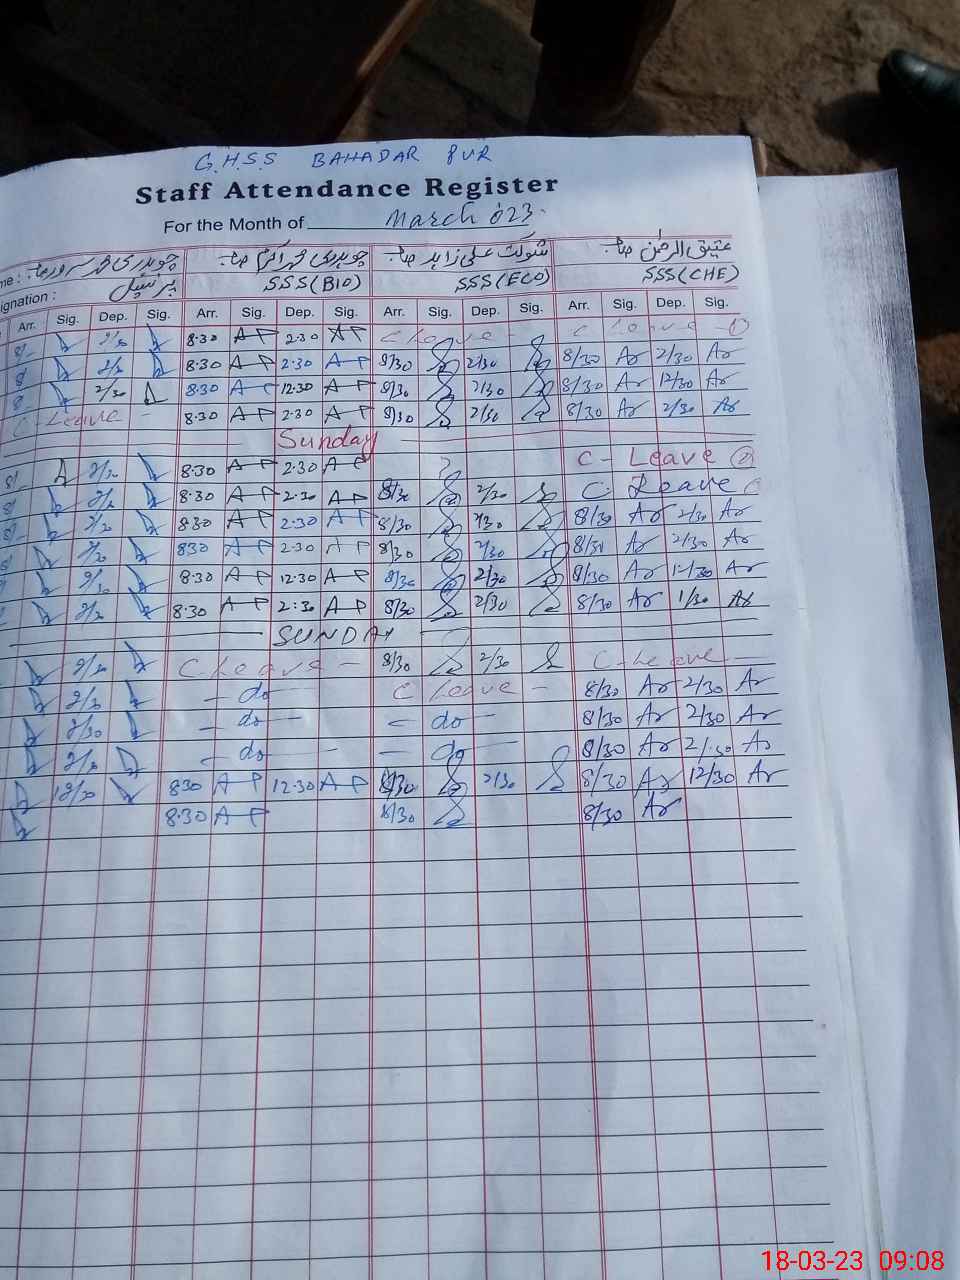 G.H.S.S BAHADAR PUR
Staff Attendance Register
For the Month of March 023.
me: چوہدری محمد سرور صاحب چوہدری محمد اکرم صاحب شوکت علی زاہد صاحب عتیق الرحمٰن صاحب
ignation: پرنسپل SSS(BIO) SSS(ECO) SSS(CHE)
Arr. Sig. Dep. Sig. Arr. Sig. Dep. Sig. Arr. Sig. Dep. Sig. Arr. Sig. Dep. Sig.
2/30 8.30 AP 2.30 AP C Leave - C Leave - ①
2/30 8.30 AP 2.30 AP 8/30 2/30 8/30 Ar 2/30 Ar
2/30 8.30 AP 12.30 AP 8/30 2/30 8/30 Ar 12/30 Ar
C-Leave - 8.30 AP 2.30 AP 8/30 2/30 8/30 Ar 2/30 Ar
Sunday
2/30 8.30 AP 2.30 AP C - Leave ②
2/30 8.30 AP 2.30 AP 8/30 2/30 C. Leave
2/30 830 AP 2.30 AP 8/30 2/30 8/30 Ar 2/30 Ar
2/30 830 AP 2.30 AP 8/30 2/30 8/30 Ar 2/30 Ar
2/30 8.30 AP 12.30 AP 8/30 2/30 8/30 Ar 12/30 Ar
2/30 8.30 AP 2:30 AP 8/30 2/30 8/30 Ar 1/30 Ar
SUNDAY
2/30 C Leave - 8/30 2/30 C-Leave -
2/30 - do - C Leave - 8/30 Ar 2/30 Ar
2/30 - do - - do - 8/30 Ar 2/30 Ar
2/30 - do - - do - 8/30 Ar 2/30 Ar
12/30 830 AP 12.30 AP 8/30 2/30 8/30 Ar 12/30 Ar
8.30 AP 8/30 8/30 Ar
18-03-23 09:08